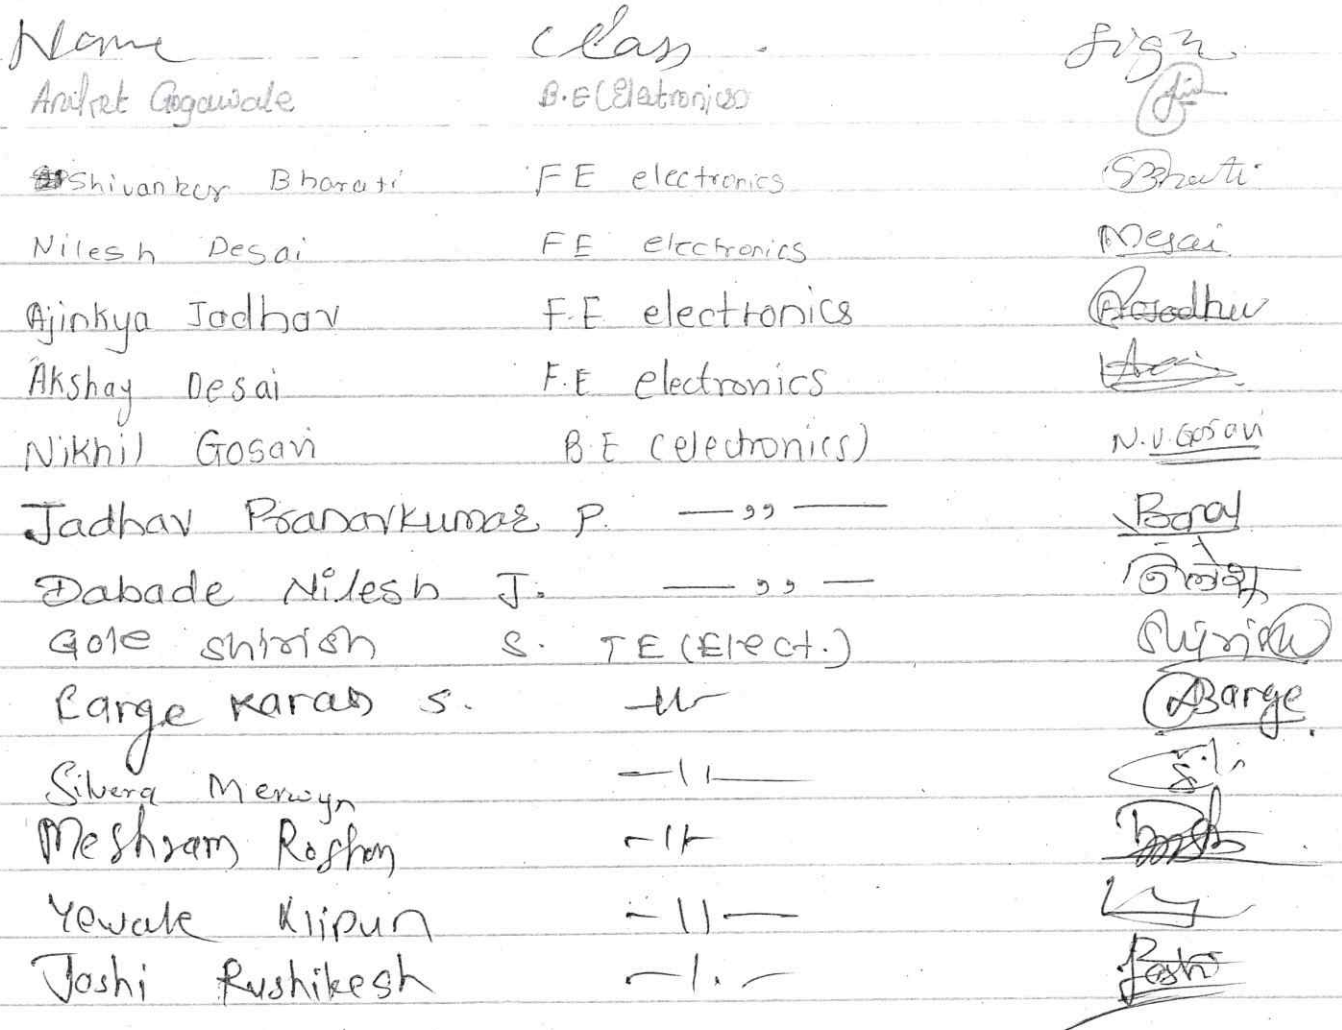 Name Class Sign
Aniket Gogawale B.E (Eletronics)
Shivanker Bharati FE electronics SBharti
Nilesh Desai FE electronics NDesai
Ajinkya Jadhav F.E electronics Jadhav
Akshay Desai F.E electronics
Nikhil Gosavi B.E (electronics) N.V. Gosavi
Jadhav Pranavkumar P. — ,, —
Dabade Nilesh J. — ,, — निलेश
Gole Shirish S. TE (Elect.) Shirish
Barge Karan S. —11— Barge
Silvera Merwyn —11—
Meshram Roshan —11—
Yewale —11—
Joshi Rushikesh —11— Joshi